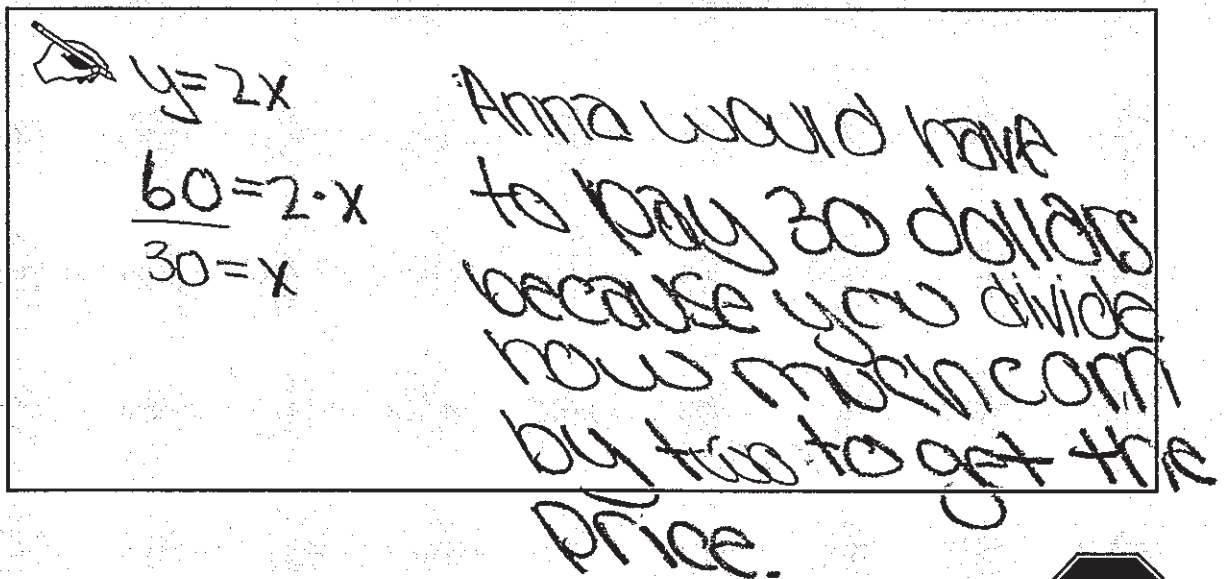 y=2x
60=2·x
30=x
Anna would have
to pay 30 dollars
because you divide
how much corn
by two to get the
price.